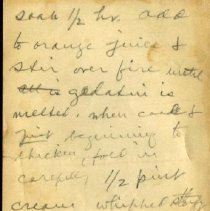 soak 1/2 hr. add
to orange juice &
stir over fire until
gelatin is
melted. when cool &
just beginning to
thicken, fold in
carefully 1/2 pint
cream whipped